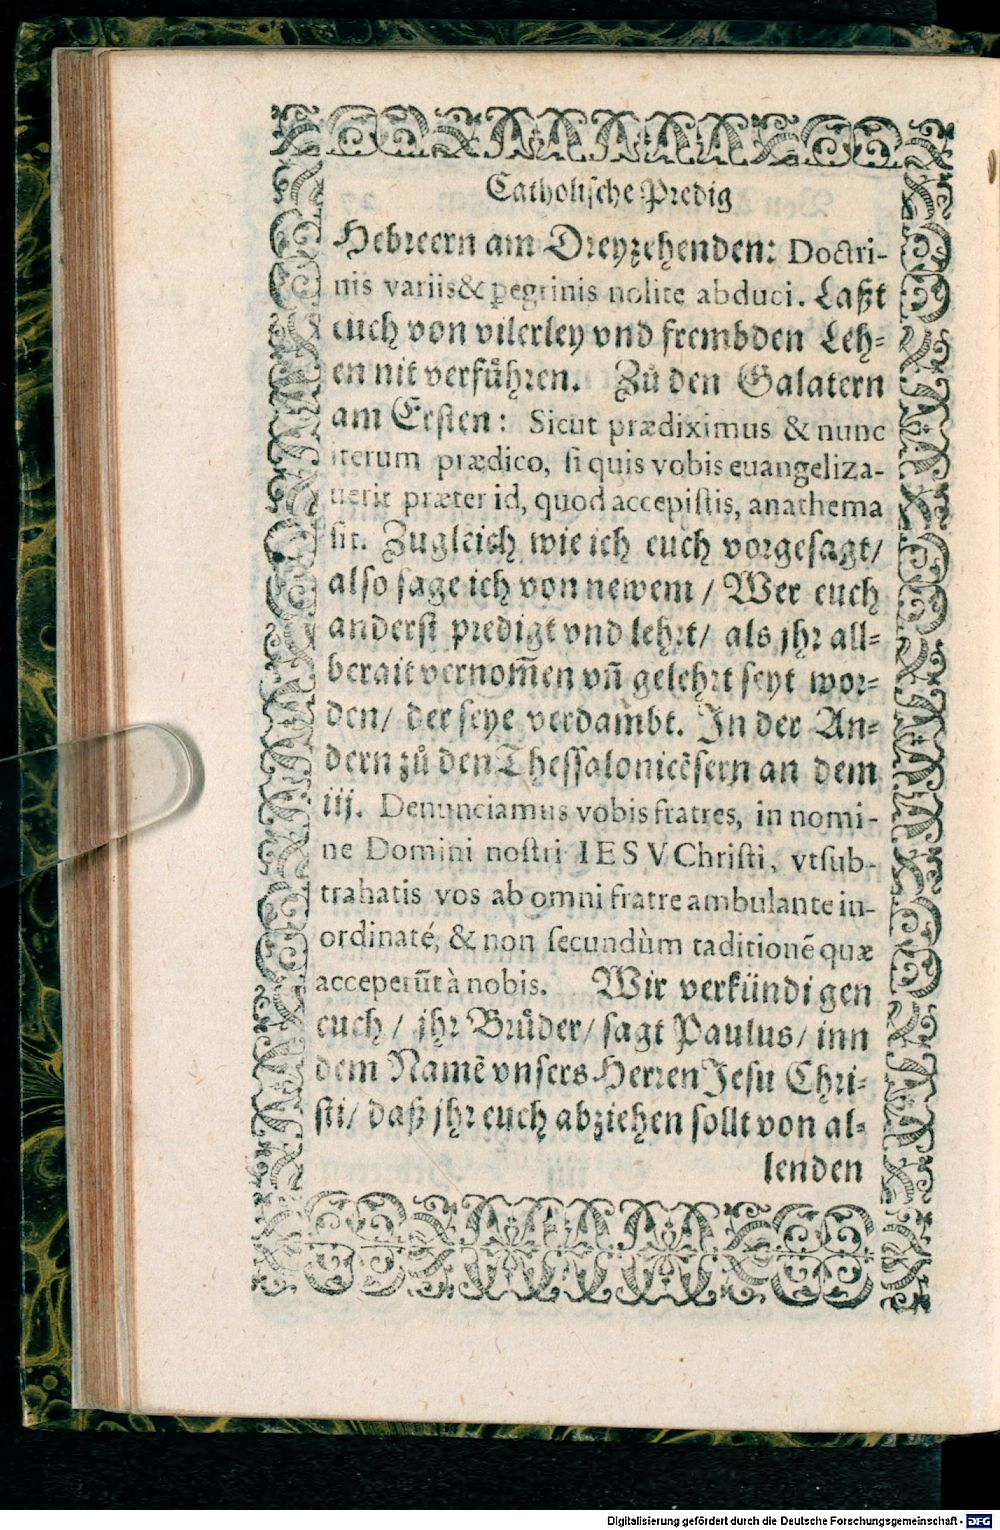 Catholische Predig
Hebreern am Dreyzehenden: Doctri-
nis variis & peregrinis nolite abduci. Laßt
euch von vilerley vnd frembden Leh-
en nit verfühꝛen. Zů den Galatern
am Ersten: Sicut prædiximus & nunc
iterum prædico, si quis vobis euangeliza-
uerit præter id, quod accepistis, anathema
sit. Zugleich wie ich euch vorgesagt/
also sage ich von newem / Wer euch
anderst predigt vnd lehꝛt/ als jhꝛ all-
berait vernom̃en vñ gelehꝛt seyt wor-
den/ der seye verdambt. In der An-
dern zů den Thessalonicẽsern an dem
iij. Denunciamus vobis fratres, in nomi-
ne Domini nostri IESV Christi, vt sub-
trahatis vos ab omni fratre ambulante in-
ordinaté, & non secundùm taditionē quæ
acceperūt à nobis. Wir verkündigen
euch / jhꝛ Brůder/ sagt Paulus/ inn
dem Namẽ vnsers Herꝛen Jesu Chri-
sti/ daß jhꝛ euch abziehen sollt von al-
lenden
Digitalisierung gefördert durch die Deutsche Forschungsgemeinschaft - DFG